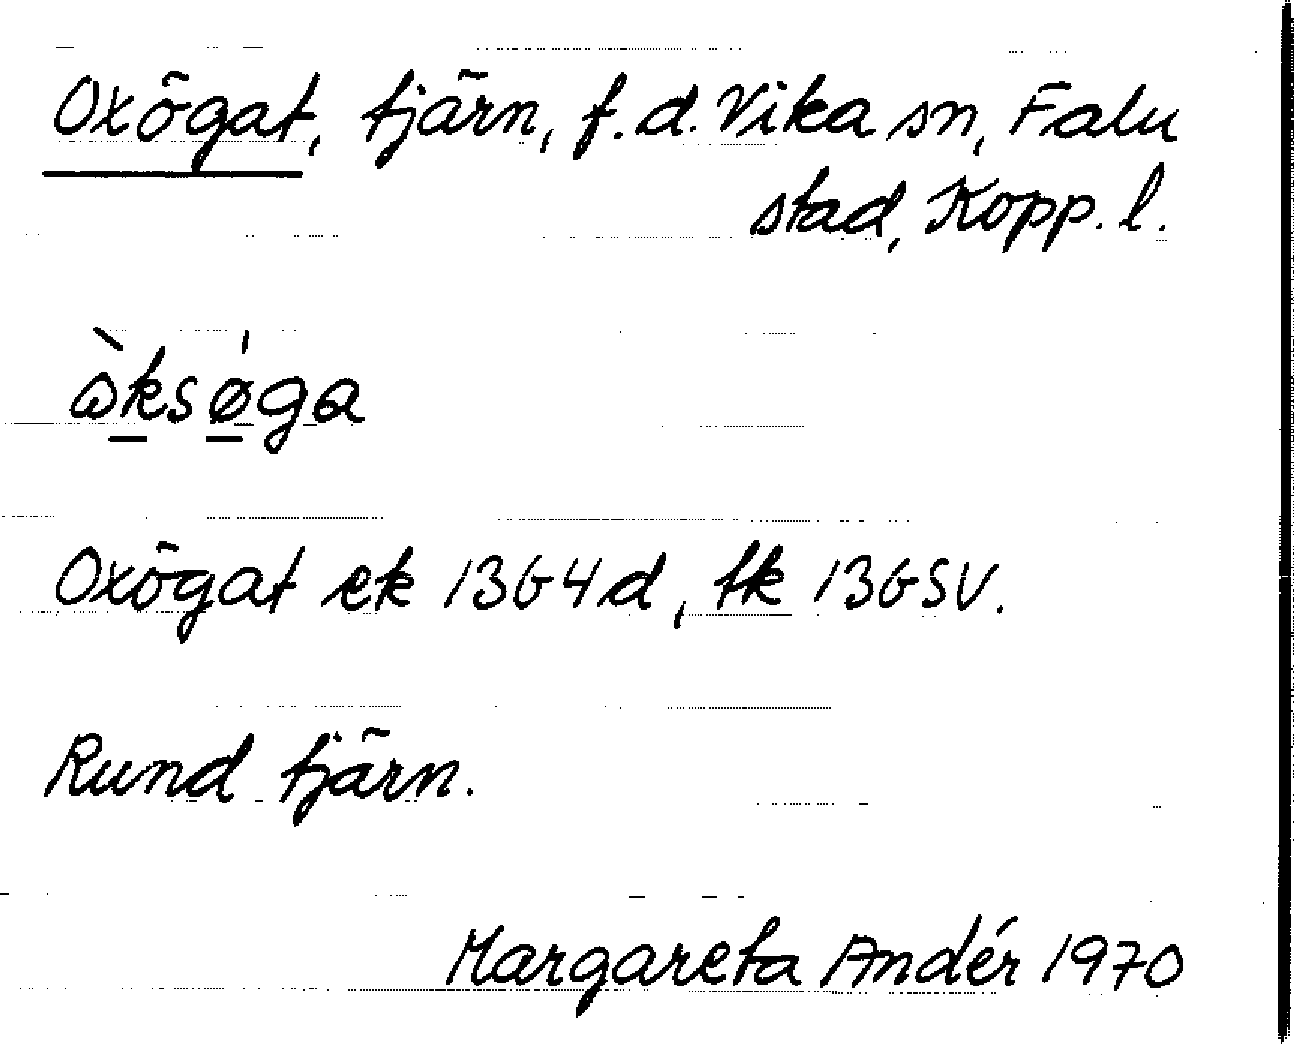 Oxögat, tjärn, f.d. Vika sn, Falu
stad, Kopp. l.
ὼksø̍ga
Oxögat ek 13G4d, tk 13GSV.
Rund tjärn.
Margareta Andér 1970